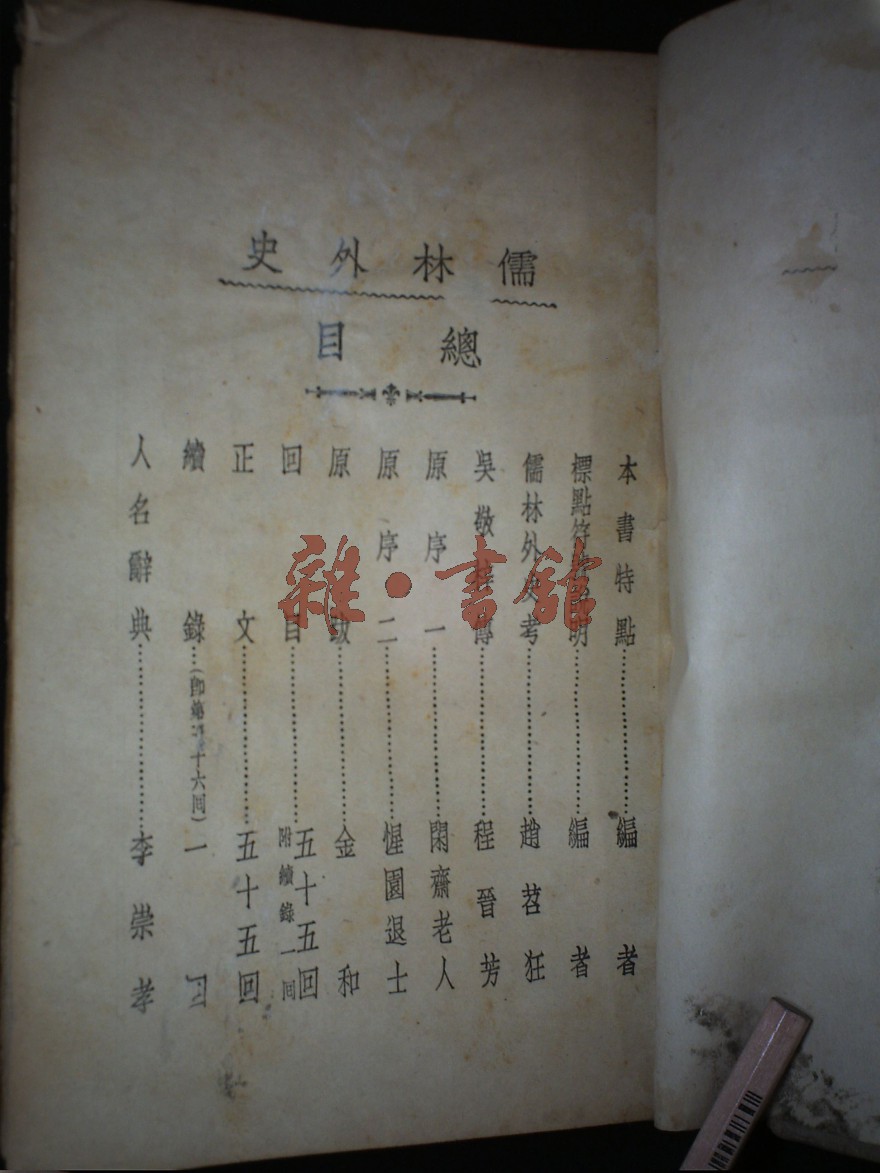 儒林外史
總目
本書特點……編者
標點符號說明……編者
儒林外史考……趙苕狂
吳敬梓傳……程晉芳
原序一……閑齋老人
原序二……惺園退士
原跋……金和
回目……五十五回 附續錄一回
正文……五十五回
續錄…(即第五十六回)一回
人名辭典……李崇孝
雜·書館